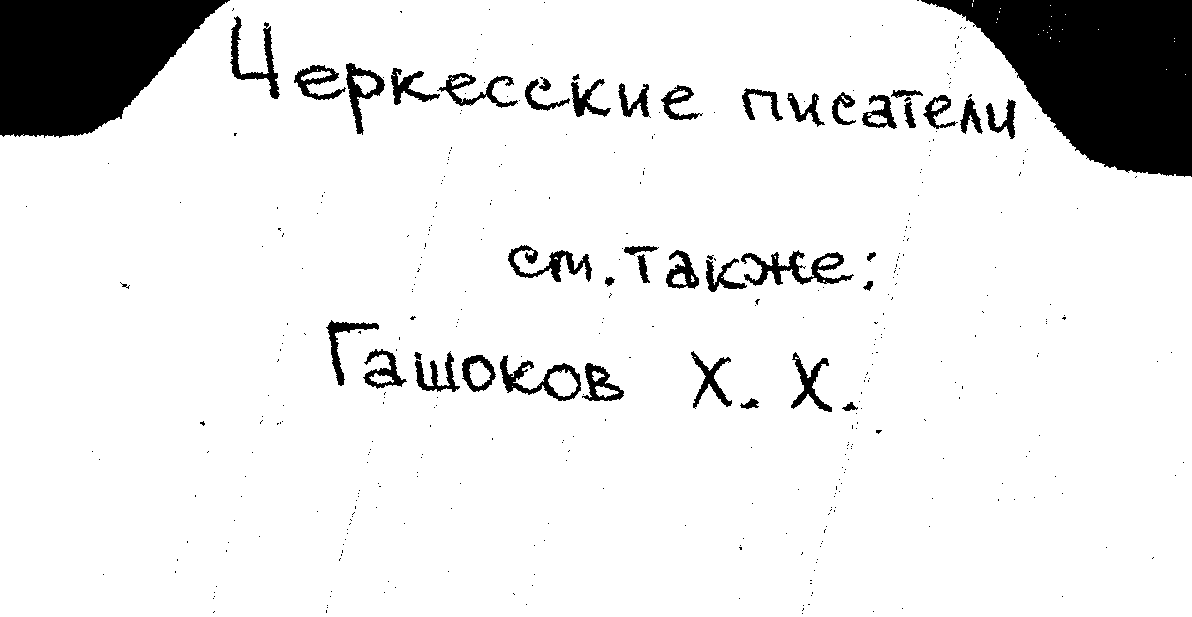 Черкесские писатели
см. также:
Гашоков Х. Х.